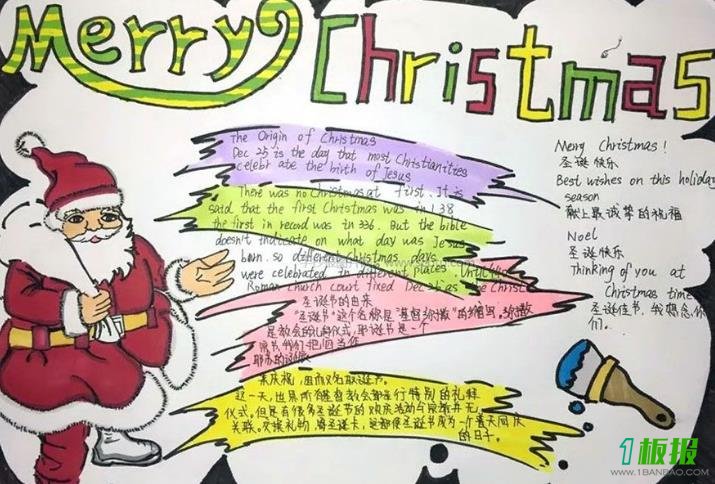 Merry Christmas
The Origin of Christmas
Dec 25 is the day that most Christianities
celebr ate the birth of Jesus
There was no Christmas at first. It is
said that the first Christmas was in 138
the first in record was in 336. But the bible
doesn't indicate on what day was Jesus
born. so different Christmas days
were celebrated in different plates. Until
Roman church court fixed Dec as the Christ
圣诞节的由来
"圣诞节"这个名称是"基督弥撒"的缩写。弥撒
是教会的礼拜仪式,耶诞节是一个
们把 当作
耶稣的
来庆祝,因而又名耶诞节。
这一天,世界所有基督教会都举行特别的礼拜
仪式。但是有很多圣诞节的欢庆活动 并无
关联。交换礼物,寄圣诞卡,这都使圣诞节成为一个普天同庆
的日子。
Merry Christmas!
圣诞快乐
Best wishes on this holiday
season
献上最诚挚的祝福
Noel
圣诞快乐
Thinking of you at
Christmas time
圣诞佳节,我想念你
们。
1板报
WWW.1BANBAO.COM